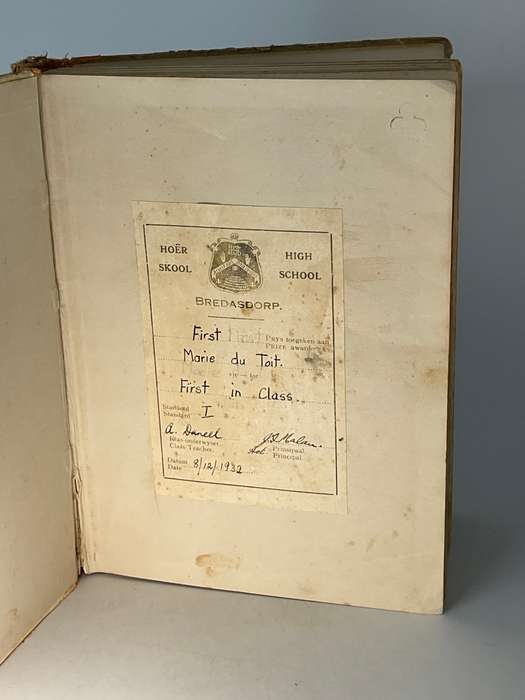 HOËR SKOOL
HIGH SCHOOL
BREDASDORP.
First First Prys toegeken aan
PRIZE awarded to
Marie du Toit.
vir — for
First in Class.
Standaard
Standard I
A. Daneel
Klas-onderwyser
Class Teacher.
Prinsipaal
Principal.
Datum
Date 8/12/1932